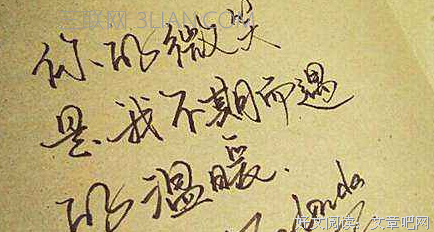 三联网 3LIAN.COM
你的微笑
是我不期而遇
的温暖.
好文阅读：文章吧网